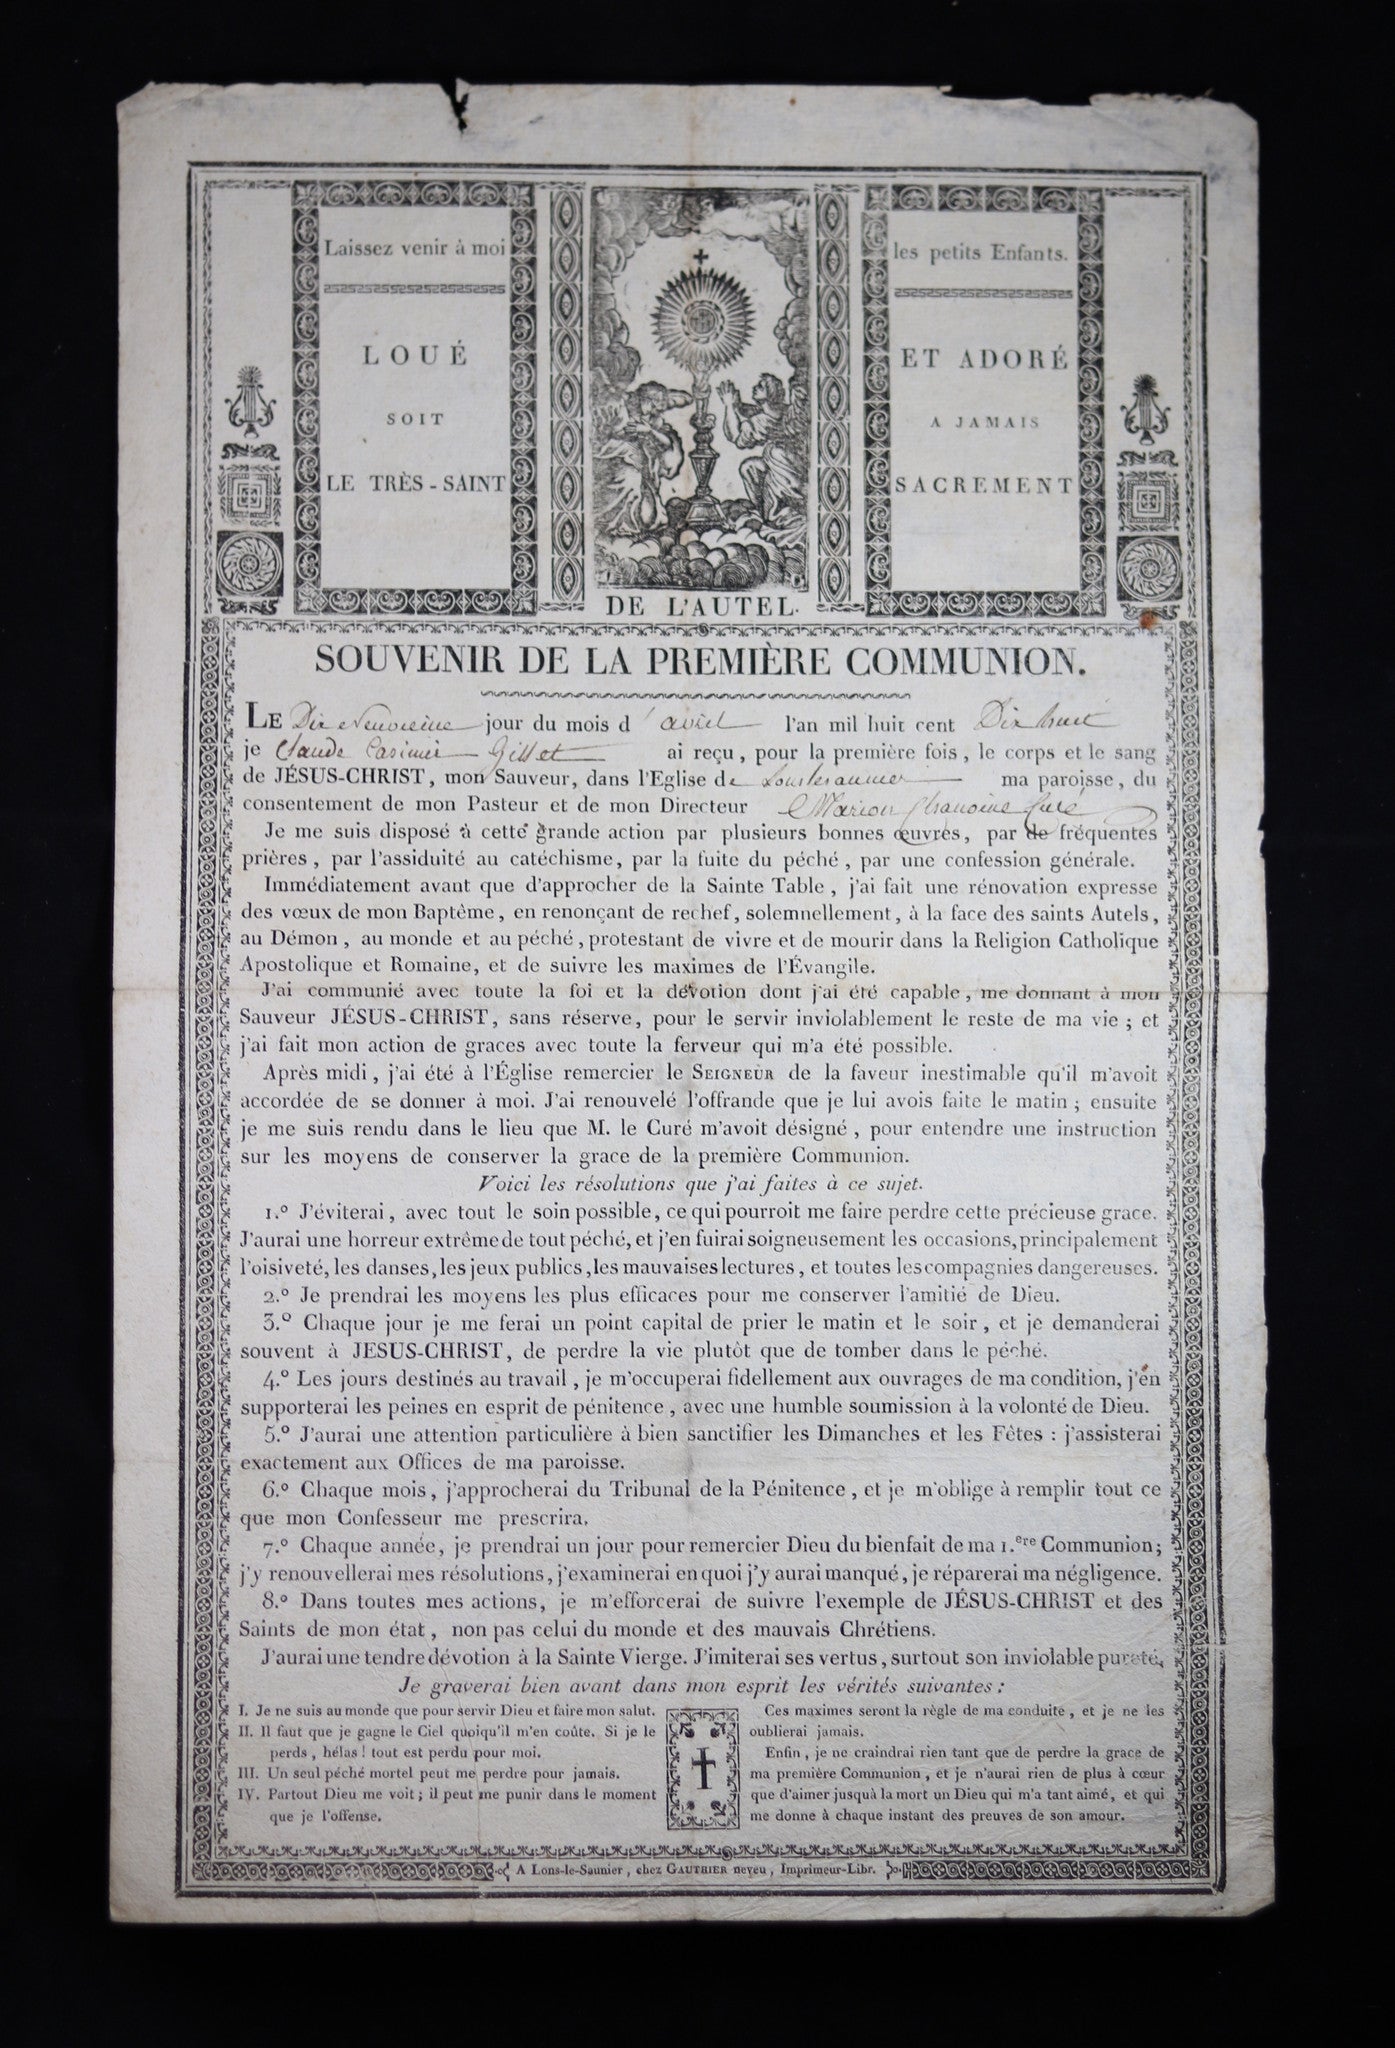 Laissez venir à moi
les petits Enfants.
LOUÉ
ET ADORÉ
SOIT
A JAMAIS
LE TRÈS-SAINT
SACREMENT
DE L'AUTEL.
SOUVENIR DE LA PREMIÈRE COMMUNION.
LE Dix Neuvieme jour du mois d'avril l'an mil huit cent Dix huit
je Claude Casimir Gillet ai reçu, pour la première fois, le corps et le sang
de JÉSUS-CHRIST, mon Sauveur, dans l'Eglise de Lonslesaunier ma paroisse, du
consentement de mon Pasteur et de mon Directeur Marion Chanoine Curé
Je me suis disposé à cette grande action par plusieurs bonnes œuvres, par de fréquentes
prières, par l'assiduité au catéchisme, par la fuite du péché, par une confession générale.
Immédiatement avant que d'approcher de la Sainte Table, j'ai fait une rénovation expresse
des vœux de mon Baptême, en renonçant de rechef, solemnellement, à la face des saints Autels,
au Démon, au monde et au péché, protestant de vivre et de mourir dans la Religion Catholique
Apostolique et Romaine, et de suivre les maximes de l'Évangile.
J'ai communié avec toute la foi et la dévotion dont j'ai été capable, me donnant à mon
Sauveur JÉSUS-CHRIST, sans réserve, pour le servir inviolablement le reste de ma vie; et
j'ai fait mon action de graces avec toute la ferveur qui m'a été possible.
Après midi, j'ai été à l'Église remercier le SEIGNEUR de la faveur inestimable qu'il m'avoit
accordée de se donner à moi. J'ai renouvelé l'offrande que je lui avois faite le matin; ensuite
je me suis rendu dans le lieu que M. le Curé m'avoit désigné, pour entendre une instruction
sur les moyens de conserver la grace de la première Communion.
Voici les résolutions que j'ai faites à ce sujet.
1.º J'éviterai, avec tout le soin possible, ce qui pourroit me faire perdre cette précieuse grace.
J'aurai une horreur extrême de tout péché, et j'en fuirai soigneusement les occasions, principalement
l'oisiveté, les danses, les jeux publics, les mauvaises lectures, et toutes les compagnies dangereuses.
2.º Je prendrai les moyens les plus efficaces pour me conserver l'amitié de Dieu.
3.º Chaque jour je me ferai un point capital de prier le matin et le soir, et je demanderai
souvent à JESUS-CHRIST, de perdre la vie plutôt que de tomber dans le péché.
4.º Les jours destinés au travail, je m'occuperai fidellement aux ouvrages de ma condition, j'en
supporterai les peines en esprit de pénitence, avec une humble soumission à la volonté de Dieu.
5.º J'aurai une attention particulière à bien sanctifier les Dimanches et les Fêtes: j'assisterai
exactement aux Offices de ma paroisse.
6.º Chaque mois, j'approcherai du Tribunal de la Pénitence, et je m'oblige à remplir tout ce
que mon Confesseur me prescrira.
7.º Chaque année, je prendrai un jour pour remercier Dieu du bienfait de ma 1.ere Communion;
j'y renouvellerai mes résolutions, j'examinerai en quoi j'y aurai manqué, je réparerai ma négligence.
8.º Dans toutes mes actions, je m'efforcerai de suivre l'exemple de JÉSUS-CHRIST et des
Saints de mon état, non pas celui du monde et des mauvais Chrétiens.
J'aurai une tendre dévotion à la Sainte Vierge. J'imiterai ses vertus, surtout son inviolable pureté.
Je graverai bien avant dans mon esprit les vérités suivantes:
I. Je ne suis au monde que pour servir Dieu et faire mon salut.
II. Il faut que je gagne le Ciel quoiqu'il m'en coûte. Si je le
perds, hélas! tout est perdu pour moi.
III. Un seul péché mortel peut me perdre pour jamais.
IV. Partout Dieu me voit; il peut me punir dans le moment
que je l'offense.
Ces maximes seront la règle de ma conduite, et je ne les
oublierai jamais.
Enfin, je ne craindrai rien tant que de perdre la grace de
ma première Communion, et je n'aurai rien de plus à cœur
que d'aimer jusquà la mort un Dieu qui m'a tant aimé, et qui
me donne à chaque instant des preuves de son amour.
A Lons-le-Saunier, chez GAUTHIER neveu, Imprimeur-Libr.